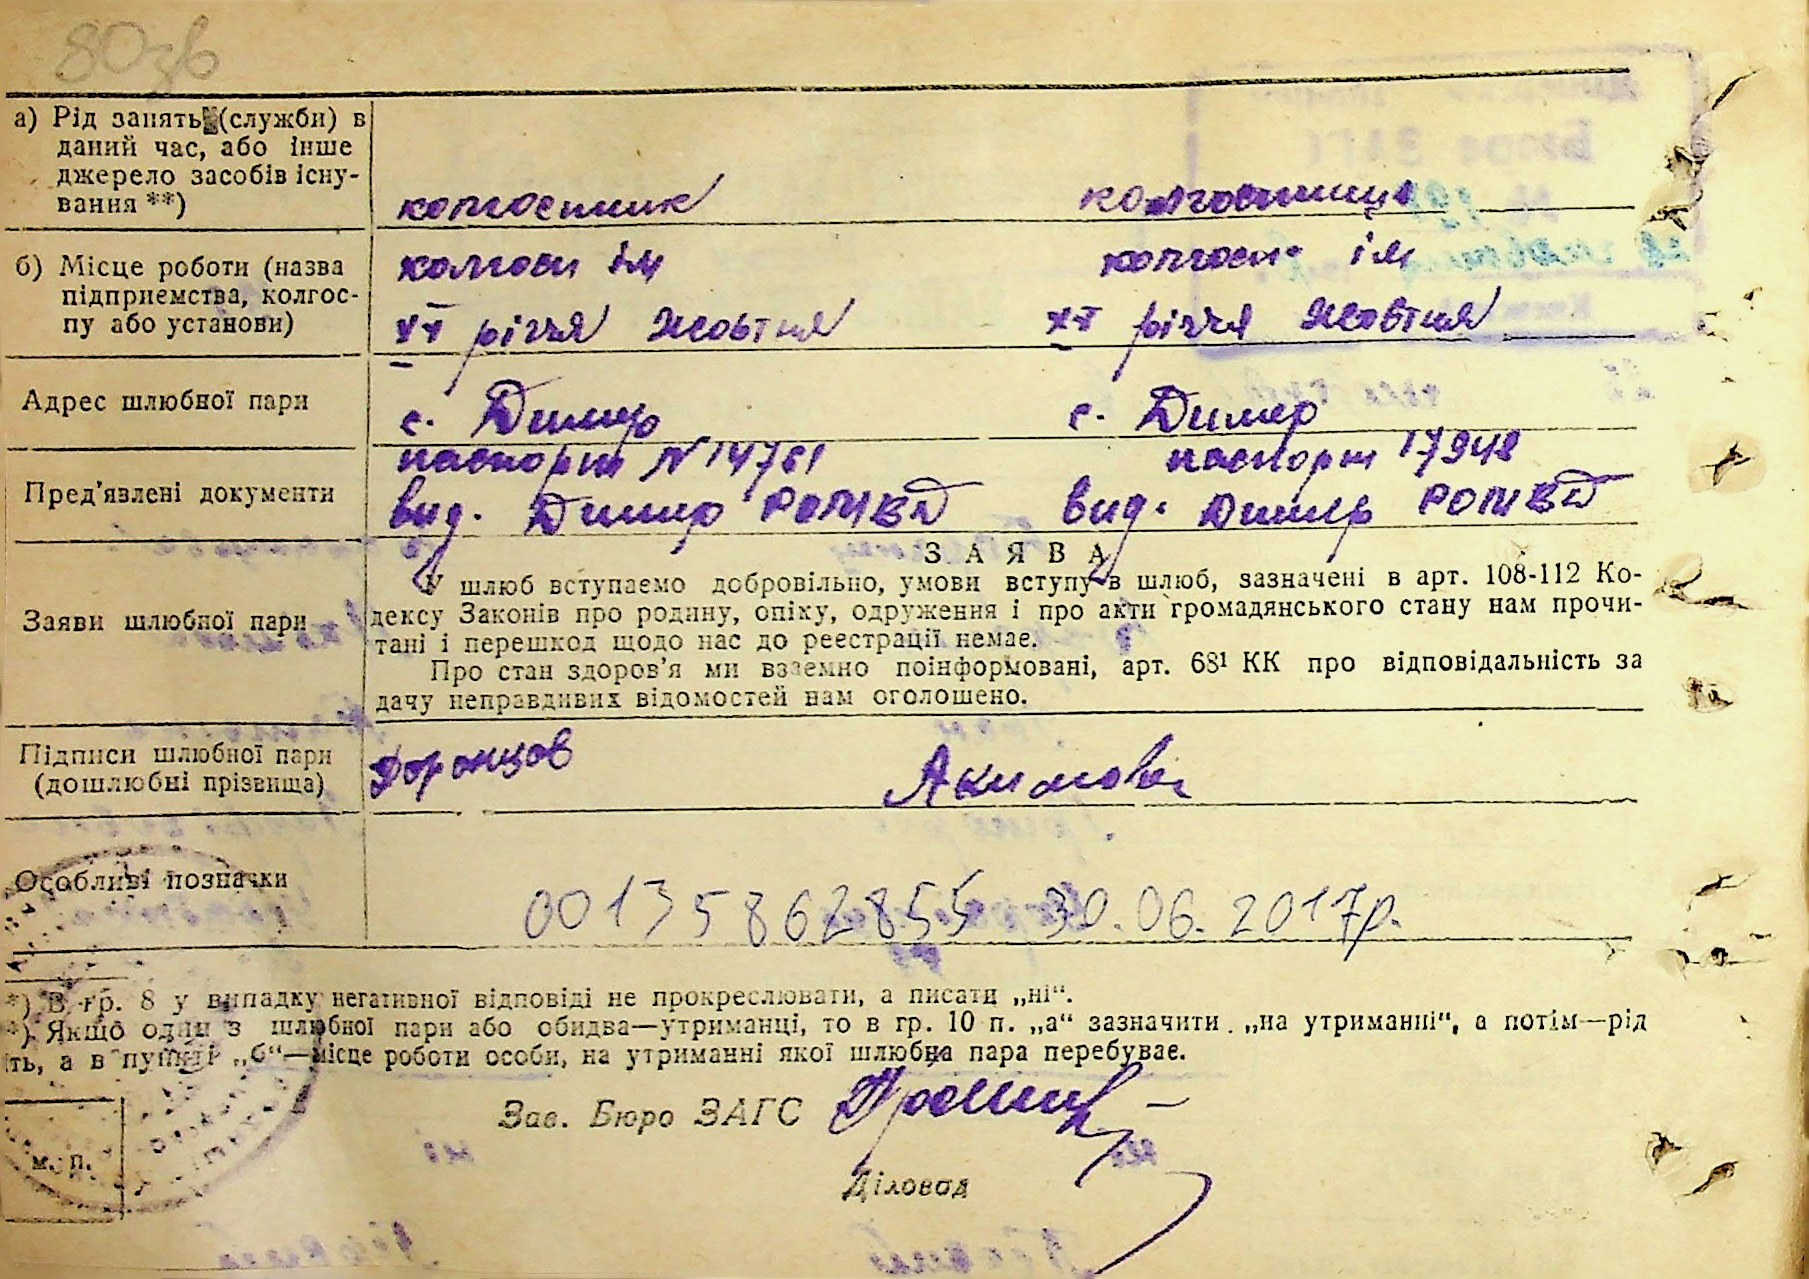 80зв
а) Рід занять (служби) в
даний час, або інше
джерело засобів існу-
вання **)
колгоспник колгоспниця
б) Місце роботи (назва
підприємства, колгос-
пу або установи)
колгосп ім колгосп ім
ХХ річчя Жовтня ХХ річчя Жовтня
Адрес шлюбної пари
с. Димер с. Димер
Пред'явлені документи
паспорт № 14761 паспорт 17942
вид. Димер РОМВД вид. Димер РОМВД
Заяви шлюбної пари
ЗАЯВА
У шлюб вступаємо добровільно, умови вступу в шлюб, зазначені в арт. 108-112 Ко-
дексу Законів про родину, опіку, одруження і про акти громадянського стану нам прочи-
тані і перешкод щодо нас до реєстрації немає.
Про стан здоров'я ми взаємно поінформовані, арт. 68¹ КК про відповідальність за
дачу неправдивих відомостей нам оголошено.
Підписи шлюбної пари
(дошлюбні прізвища)
Доронцов Акимова
Особливі позначки
00135862855 30.06.2017р.
*) В гр. 8 у випадку негативної відповіді не прокреслювати, а писати „ні“.
*) Якщо один з шлюбної пари або обидва—утриманці, то в гр. 10 п. „а“ зазначити „на утриманні“, а потім—рід
ть, а в пункті „б“—місце роботи особи, на утриманні якої шлюбна пара перебуває.
Зав. Бюро ЗАГС
Діловод
м. п.